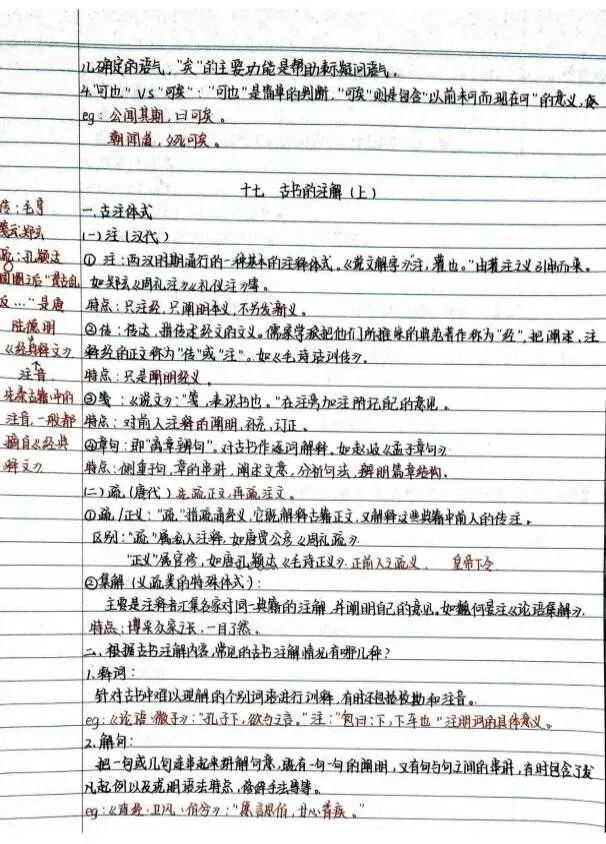 儿确定的语气，"矣"的主要功能是帮助表示疑问语气。
4."可也"VS"可矣"："可也"是简单的判断，"可矣"则是包含"以前未可而现在可"的意义，
eg：公闻其期，曰可矣。
朝闻道，夕死可矣。
十七 古书的注解（上）
一、古注体式
（一）注（汉代）
①注：两汉时期通行的一种基本的注释体式。《说文解字》"注，灌也。"由灌注义引申而来。
如郑玄《周礼注》《礼仪注》等。
特点：只注经，只阐明本义，不另发新义。
②传：传达，指传述经文的文义。儒家学派把他们所推崇的典范著作称为"经"，把阐述，注
释经的正文称为"传"或"注"。如《毛诗诂训传》。
特点：只是阐明经义。
③笺：《说文》："笺，表识书也。"在注旁加注明记自己的意见。
特点：对前人注释的阐明，补充，订正。
④章句：即"离章辨句"。对古书作逐词解释。如赵岐《孟子章句》
特点：侧重于句，章的串讲，阐述文意，分析句法，辨明篇章结构。
（二）疏（唐代）先疏正文，再疏注文。
①疏/正义："疏"指疏通经义，它既解释古籍正文，又解释这些典籍中前人的传注。
区别："疏"属私人注释，如唐贾公彦《周礼疏》
"正义"属官修，如唐孔颖达《毛诗正义》. 正前人之疏义. 皇帝下令
②集解（义疏类的特殊体式）：
主要是注释者汇集各家对同一典籍的注解，并阐明自己的意见。如魏何晏注《论语集解》.
特点：博采众家之长，一目了然。
二、根据古书注解内容，常见的古书注解情况有哪几种？
1.释词：
针对古书中难以理解的个别词语进行训释，有时还包括校勘和注音。
eg：《论语·微子》："孔子下，欲与之言。"注："包曰：下，下车也"注明词的具体意义。
2.解句：
把一句或几句连串起来讲解句意，既有一句一句的阐明，又有句与句之间的串讲，有时包含了发
凡起例以及说明语法特点，修辞手法等等。
eg：《诗经·卫风·伯兮》："愿言思伯，甘心首疾。"
传：毛亨
笺：郑玄
疏：孔颖达
反…"是唐
陆德明
《经典释文》
注音
先秦古籍中的
注音，一般都
摘自《经典
释文》